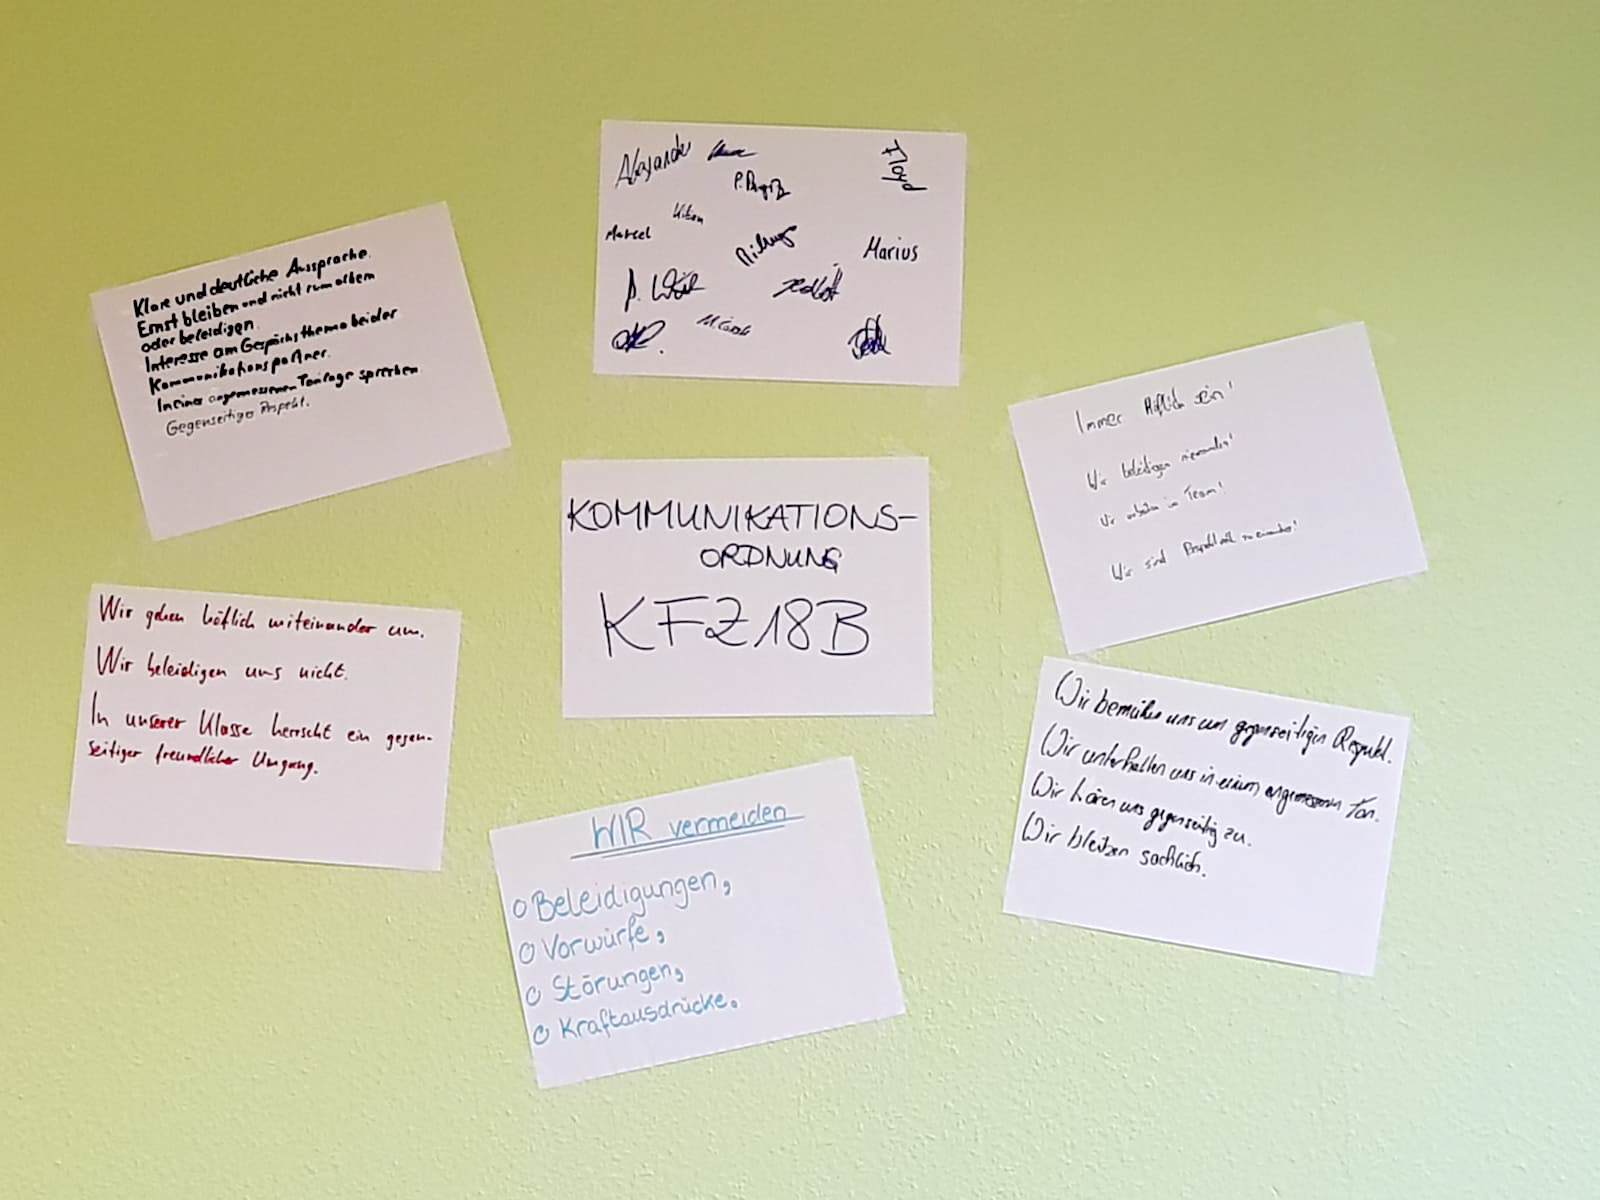 Alexander
Floyd
Marcel
Marius
Klare und deutliche Aussprache.
Ernst bleiben und nicht rumalbern
oder beleidigen.
Interesse am Gesprächsthema beider
Kommunikationspartner.
In einer angemessenen Tonlage sprechen
Gegenseitiger Respekt.
Immer Höflich sein!
Wir beleidigen niemanden!
Wir arbeiten im Team!
Wir sind Respektvoll zueinander!
KOMMUNIKATIONS-
ORDNUNG
KFZ18B
Wir gehen höflich miteinander um.
Wir beleidigen uns nicht.
In unserer Klasse herrscht ein gegen-
seitiger freundlicher Umgang.
Wir bemühen uns um gegenseitigen Respekt.
Wir unterhalten uns in einem angemessenen Ton.
Wir hören uns gegenseitig zu.
Wir bleiben sachlich.
WIR vermeiden
o Beleidigungen,
o Vorwürfe,
o Störungen,
o Kraftausdrücke.